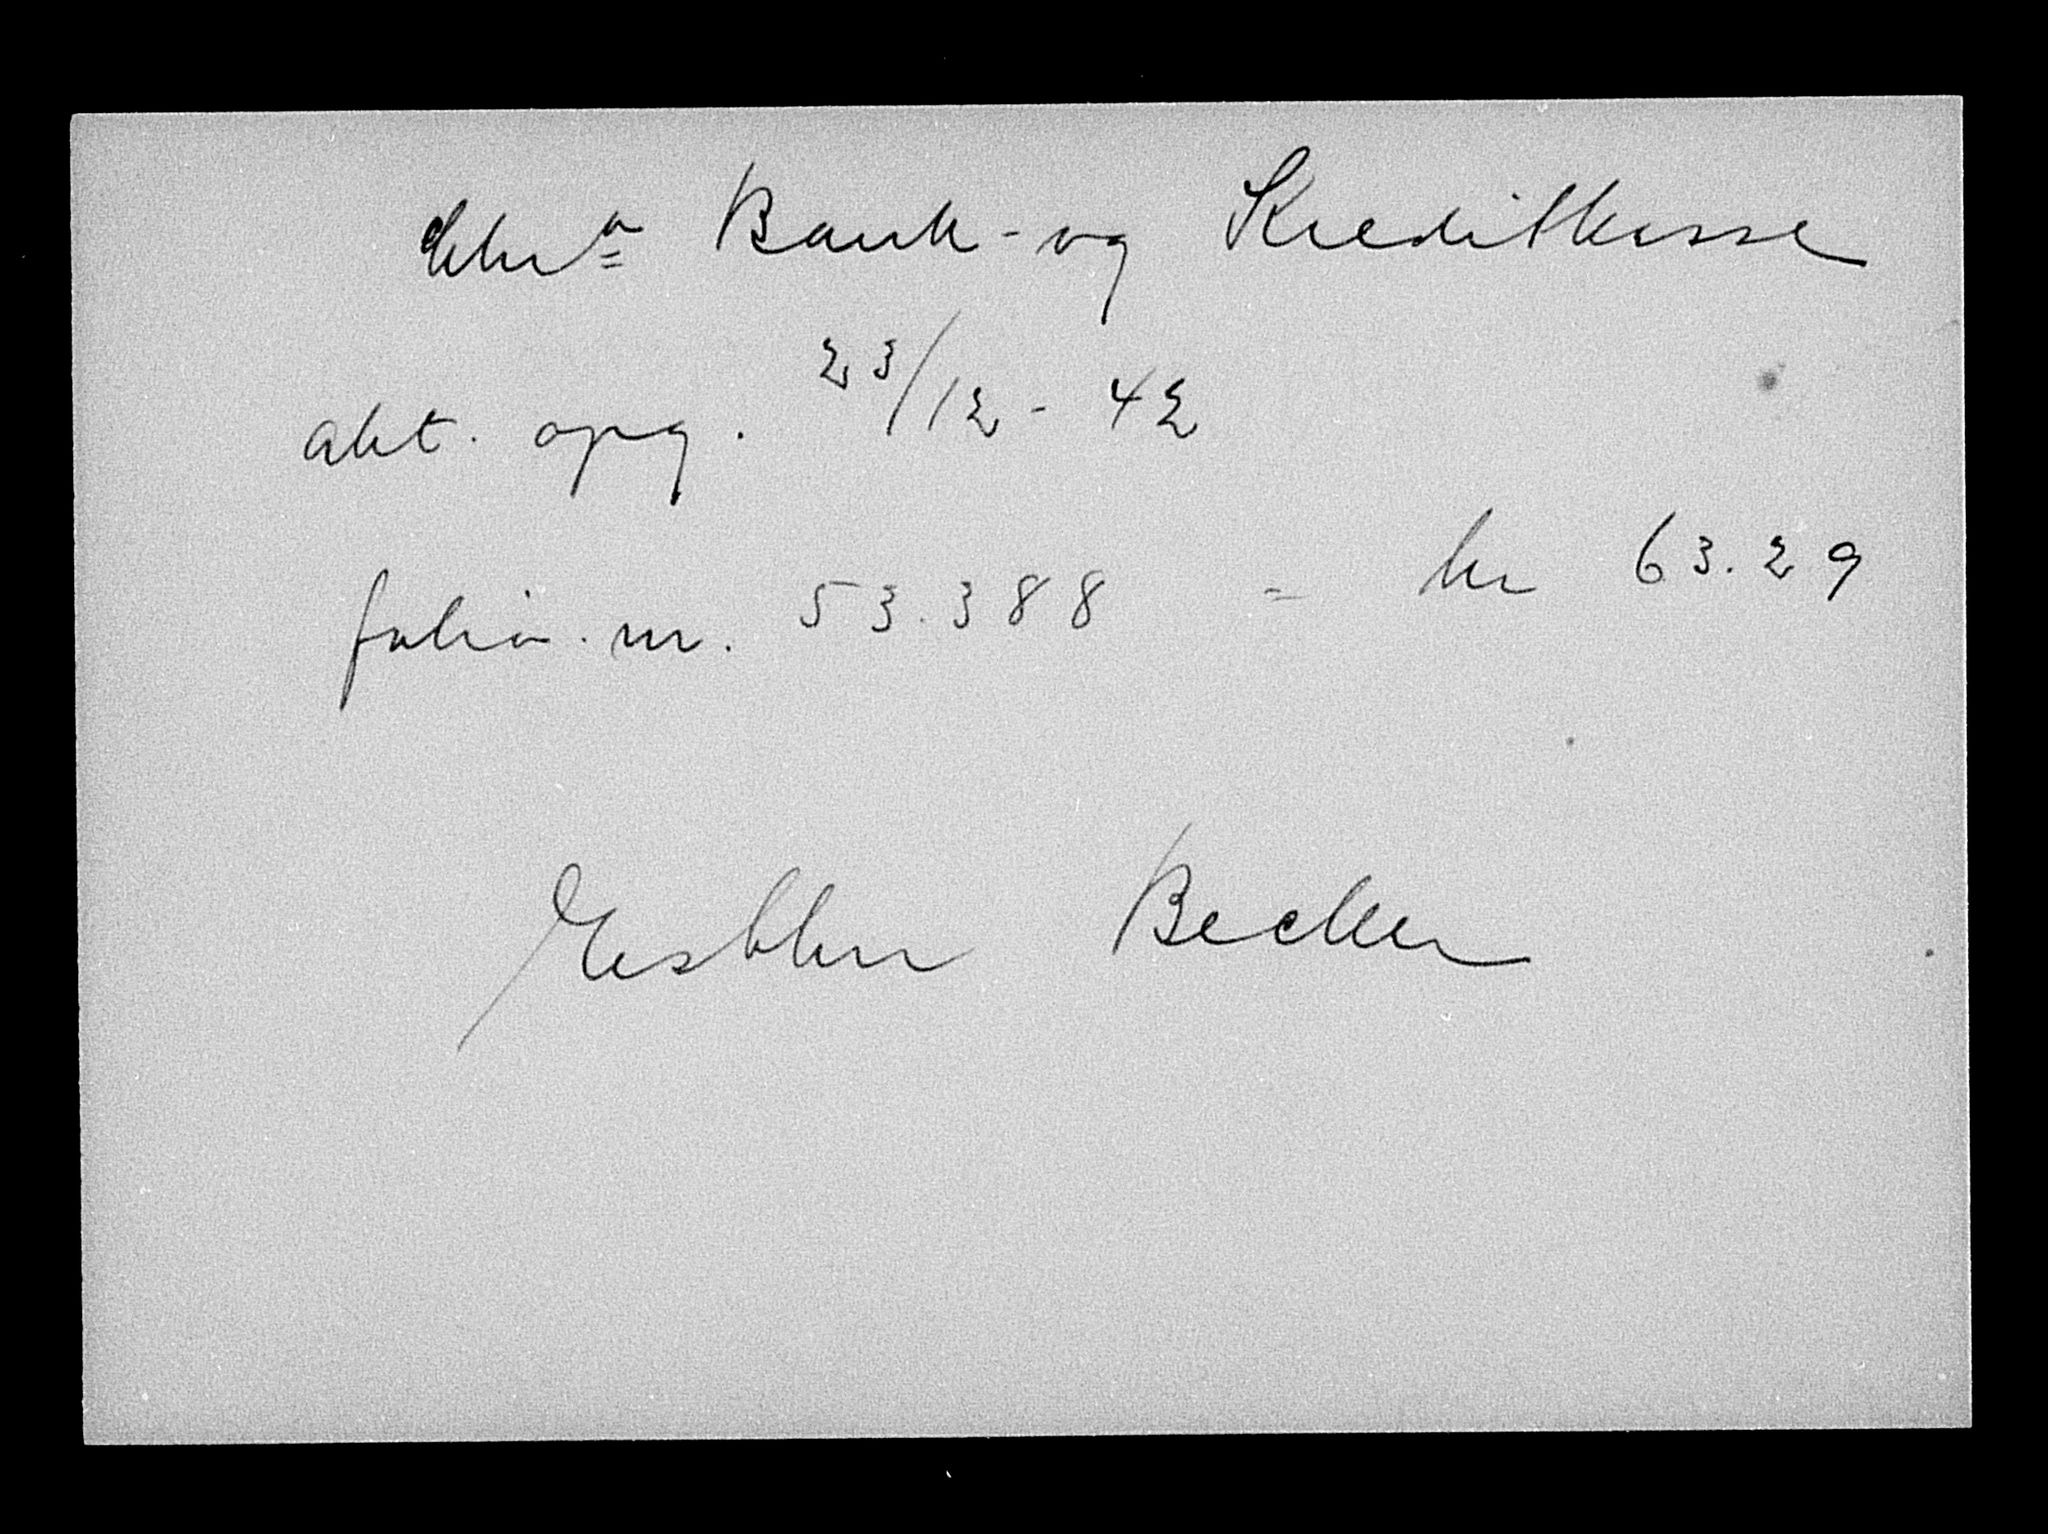 Chra Bank- og Kreditkasse
akt. opg. 23/12 - 42
folio. nr. 53.388 = kr 63.29
Becker